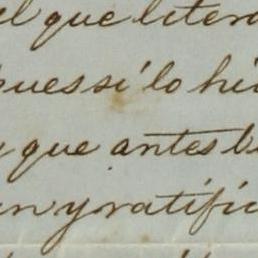 el que litera
pues si lo hi
y que antes b
en y ratific